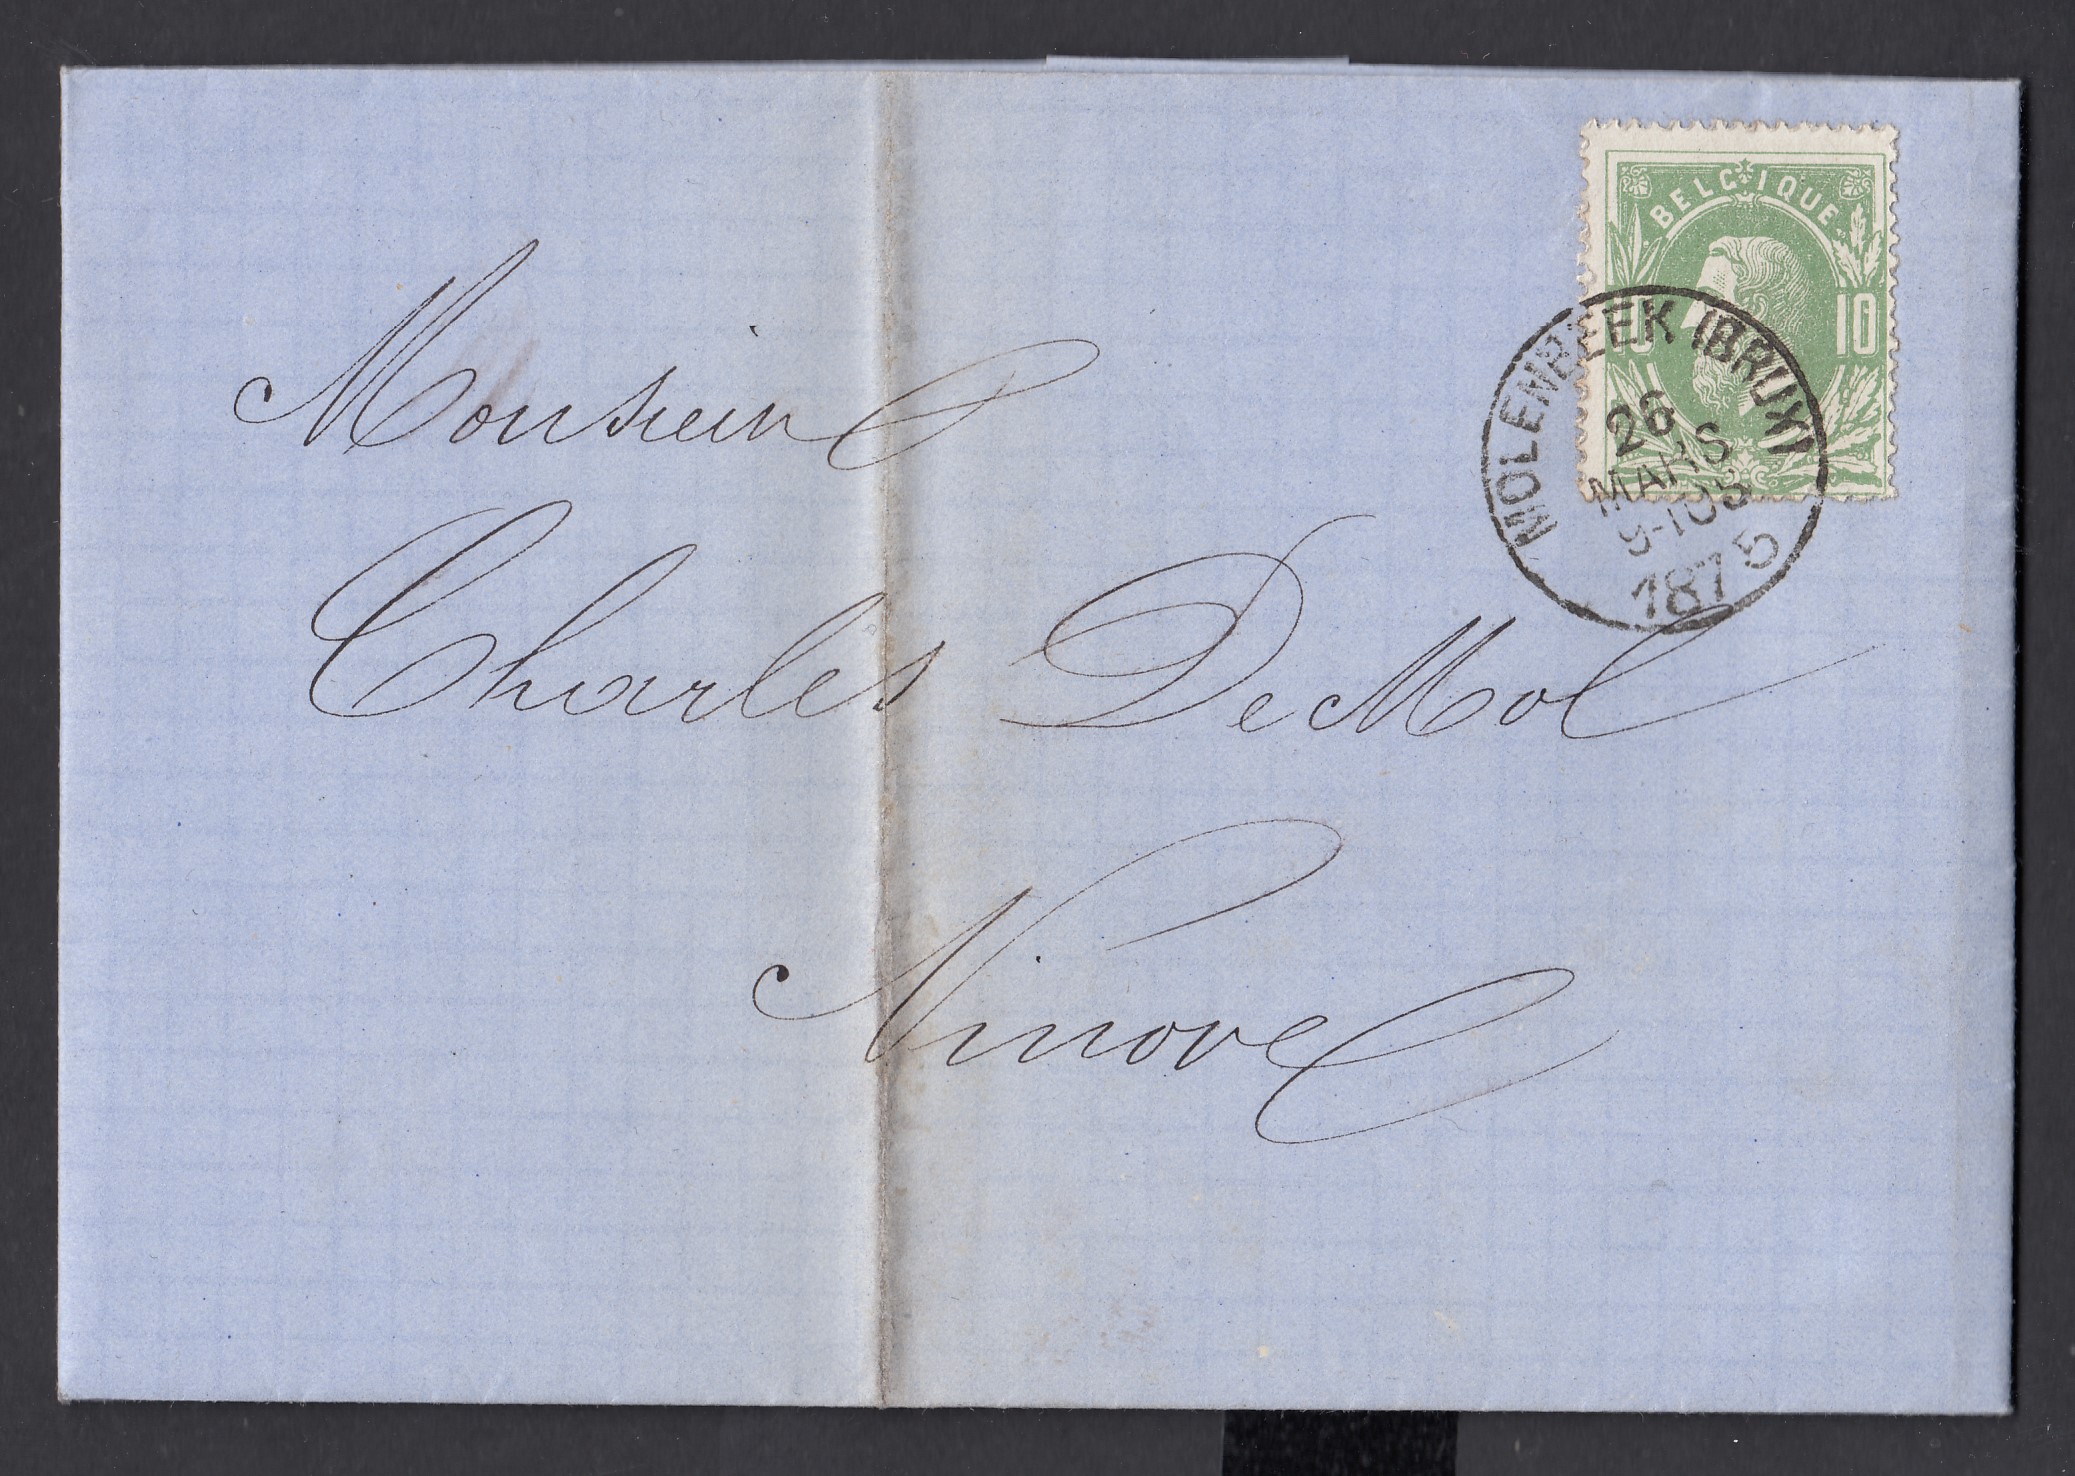 BELGIQUE
10 10
MOLENBEEK (BRUX)
26
MARS
9-10S
1875
Monsieur
Charles De Mol
Ninove